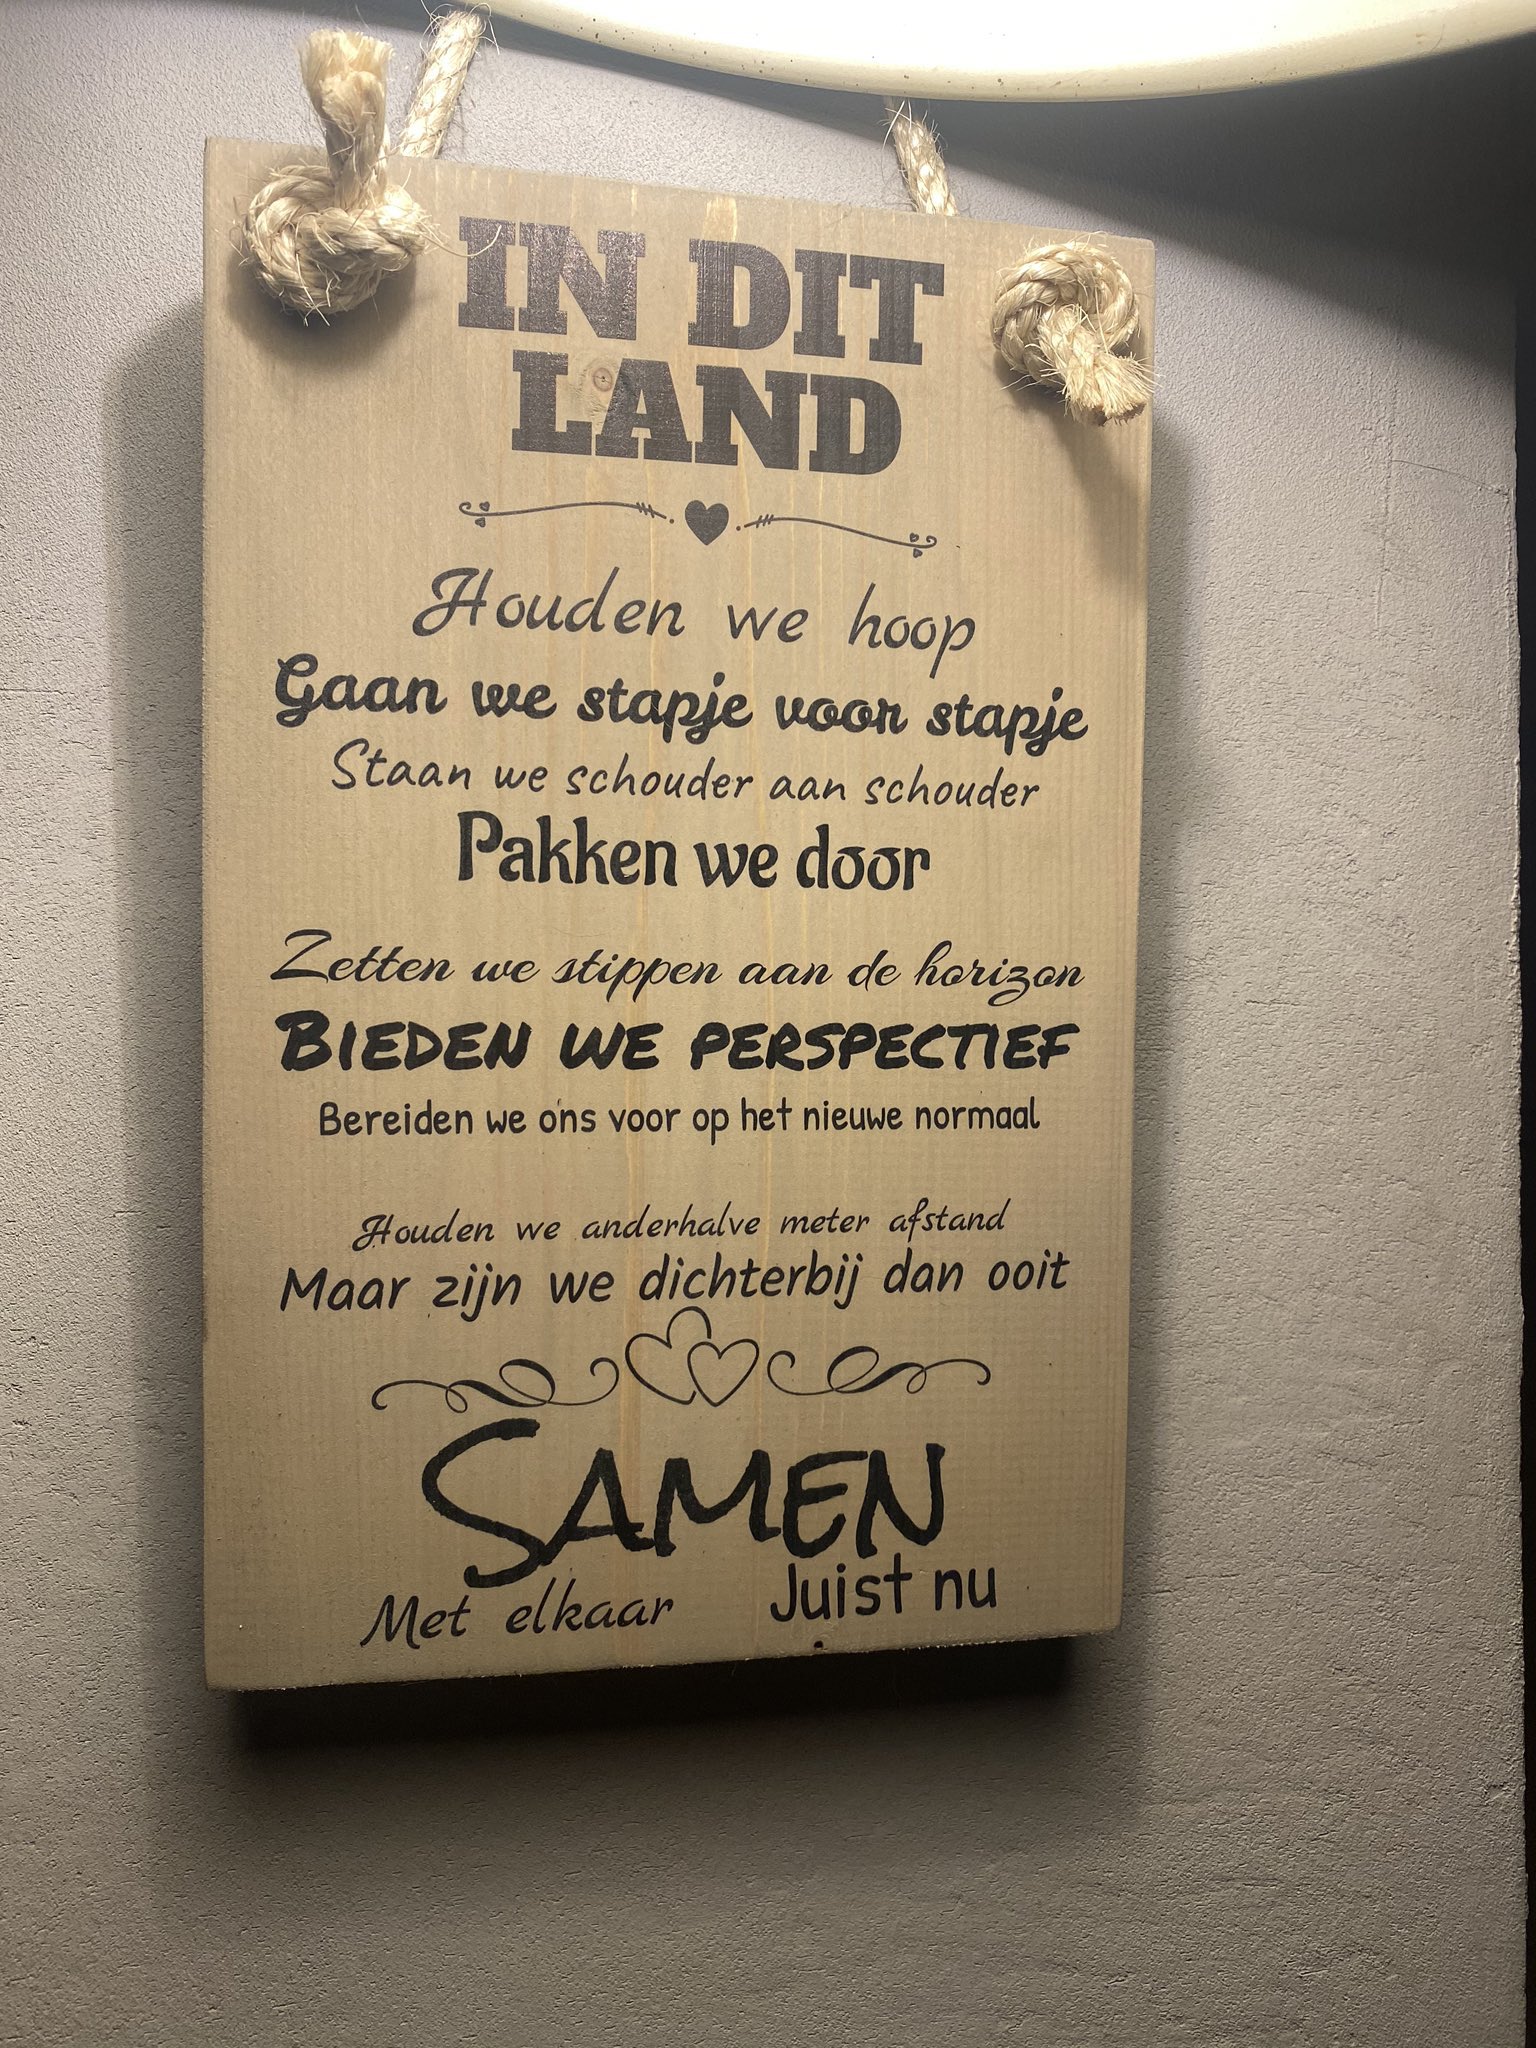 IN DIT
LAND
Houden we hoop
Gaan we stapje voor stapje
Staan we schouder aan schouder
Pakken we door
Zetten we stippen aan de horizon
BIEDEN WE PERSPECTIEF
Bereiden we ons voor op het nieuwe normaal
Houden we anderhalve meter afstand
Maar zijn we dichterbij dan ooit
SAMEN
Met elkaar Juist nu